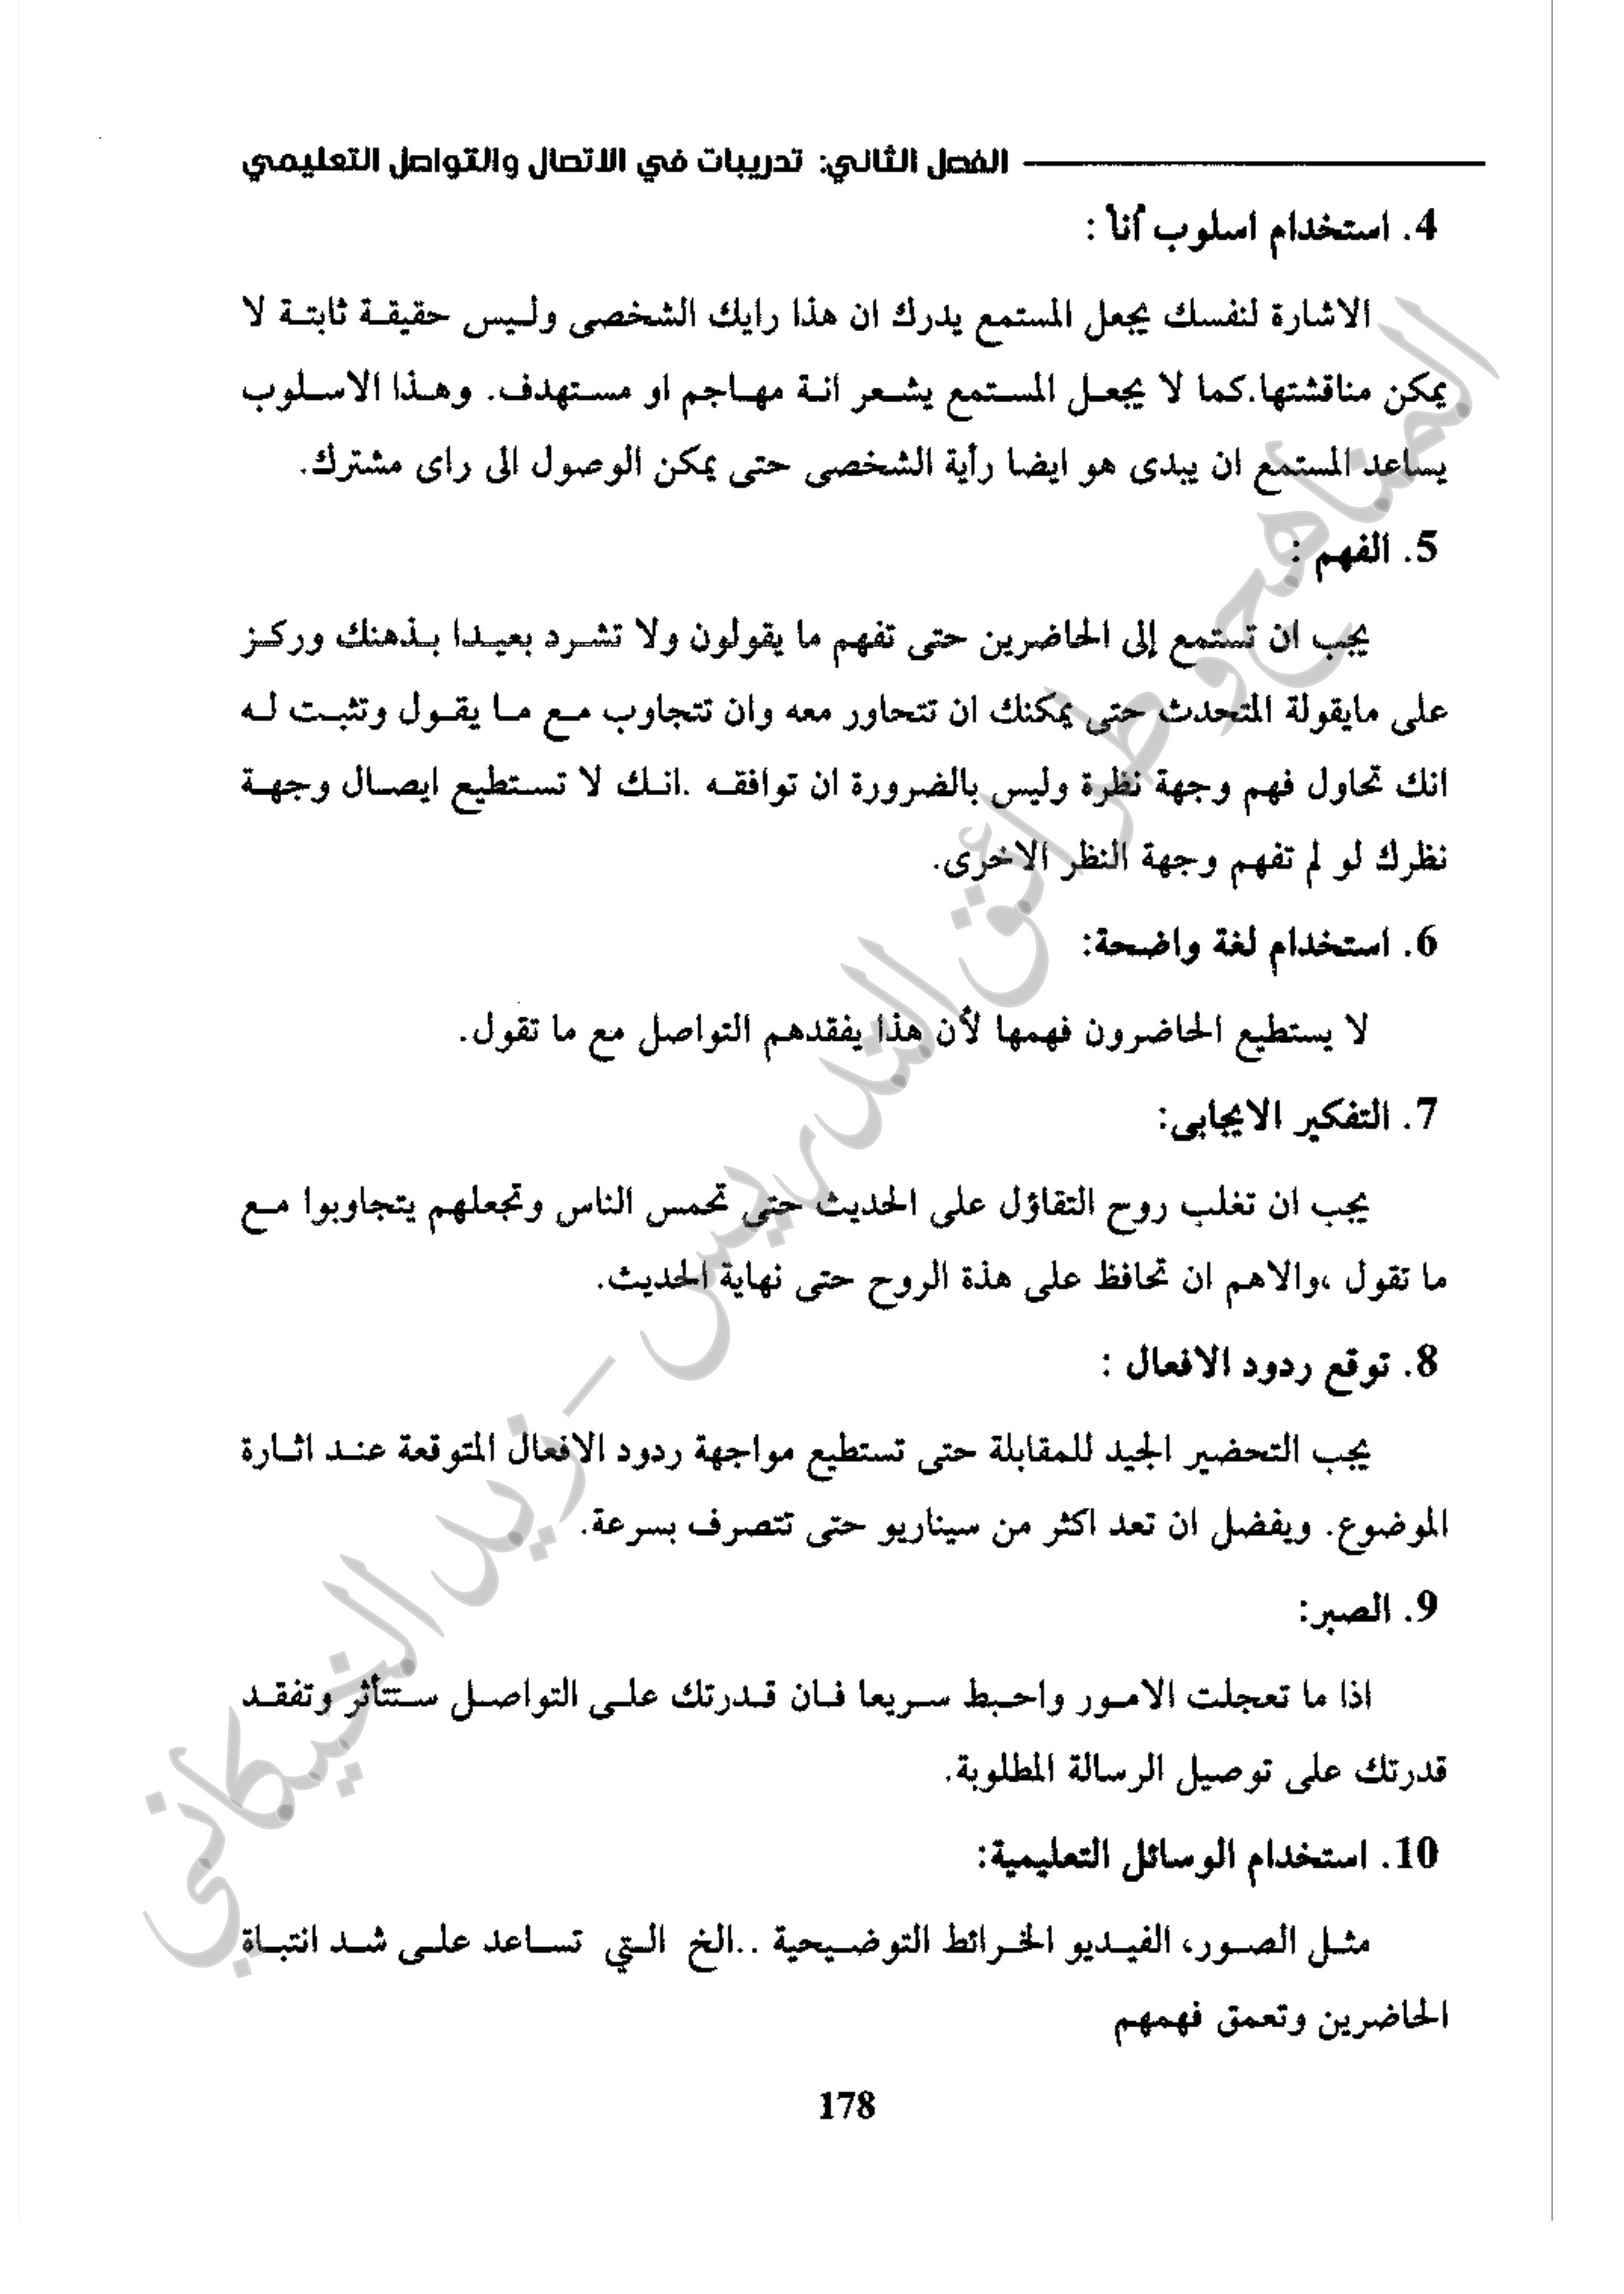 الفصل الثاني: تدريبات في الاتصال والتواصل التعليمي
4. استخدام اسلوب أنأ :
الاشارة لنفسك يجعل المستمع يدرك ان هذا رايك الشخصى وليس حقيقة ثابتة لا
يمكن مناقشتها.كما لا يجعل المستمع يشعر انة مهاجم او مستهدف. وهذا الاسلوب
يساعد المستمع ان يبدى هو ايضا رأية الشخصى حتى يمكن الوصول الى راى مشترك.
5. الفهم :
يجب ان تستمع إلى الحاضرين حتى تفهم ما يقولون ولا تشرد بعيدا بذهنك وركز
على مايقولة المتحدث حتى يمكنك ان تتحاور معه وان تتجاوب مع ما يقول وتثبت له
انك تحاول فهم وجهة نظرة وليس بالضرورة ان توافقه .انك لا تستطيع ايصال وجهة
نظرك لو لم تفهم وجهة النظر الاخرى.
6. استخدام لغة واضحة:
لا يستطيع الحاضرون فهمها لأن هذا يفقدهم التواصل مع ما تقول.
7. التفكير الايجابى:
يجب ان تغلب روح التقاؤل على الحديث حتى تحمس الناس وتجعلهم يتجاوبوا مع
ما تقول ،والاهم ان تحافظ على هذة الروح حتى نهاية الحديث.
8. توقع ردود الافعال :
يجب التحضير الجيد للمقابلة حتى تستطيع مواجهة ردود الافعال المتوقعة عند اثارة
الموضوع. ويفضل ان تعد اكثر من سيناريو حتى تتصرف بسرعة.
9. الصبر:
اذا ما تعجلت الامور واحبط سريعا فان قدرتك على التواصل ستتأثر وتفقد
قدرتك على توصيل الرسالة المطلوبة.
10. استخدام الوسائل التعليمية:
مثل الصور، الفيديو الخرائط التوضيحية ..الخ التي تساعد على شد انتباة
الحاضرين وتعمق فهمهم
178
المناهج وطرائق التدريس - زيد الخيكاني